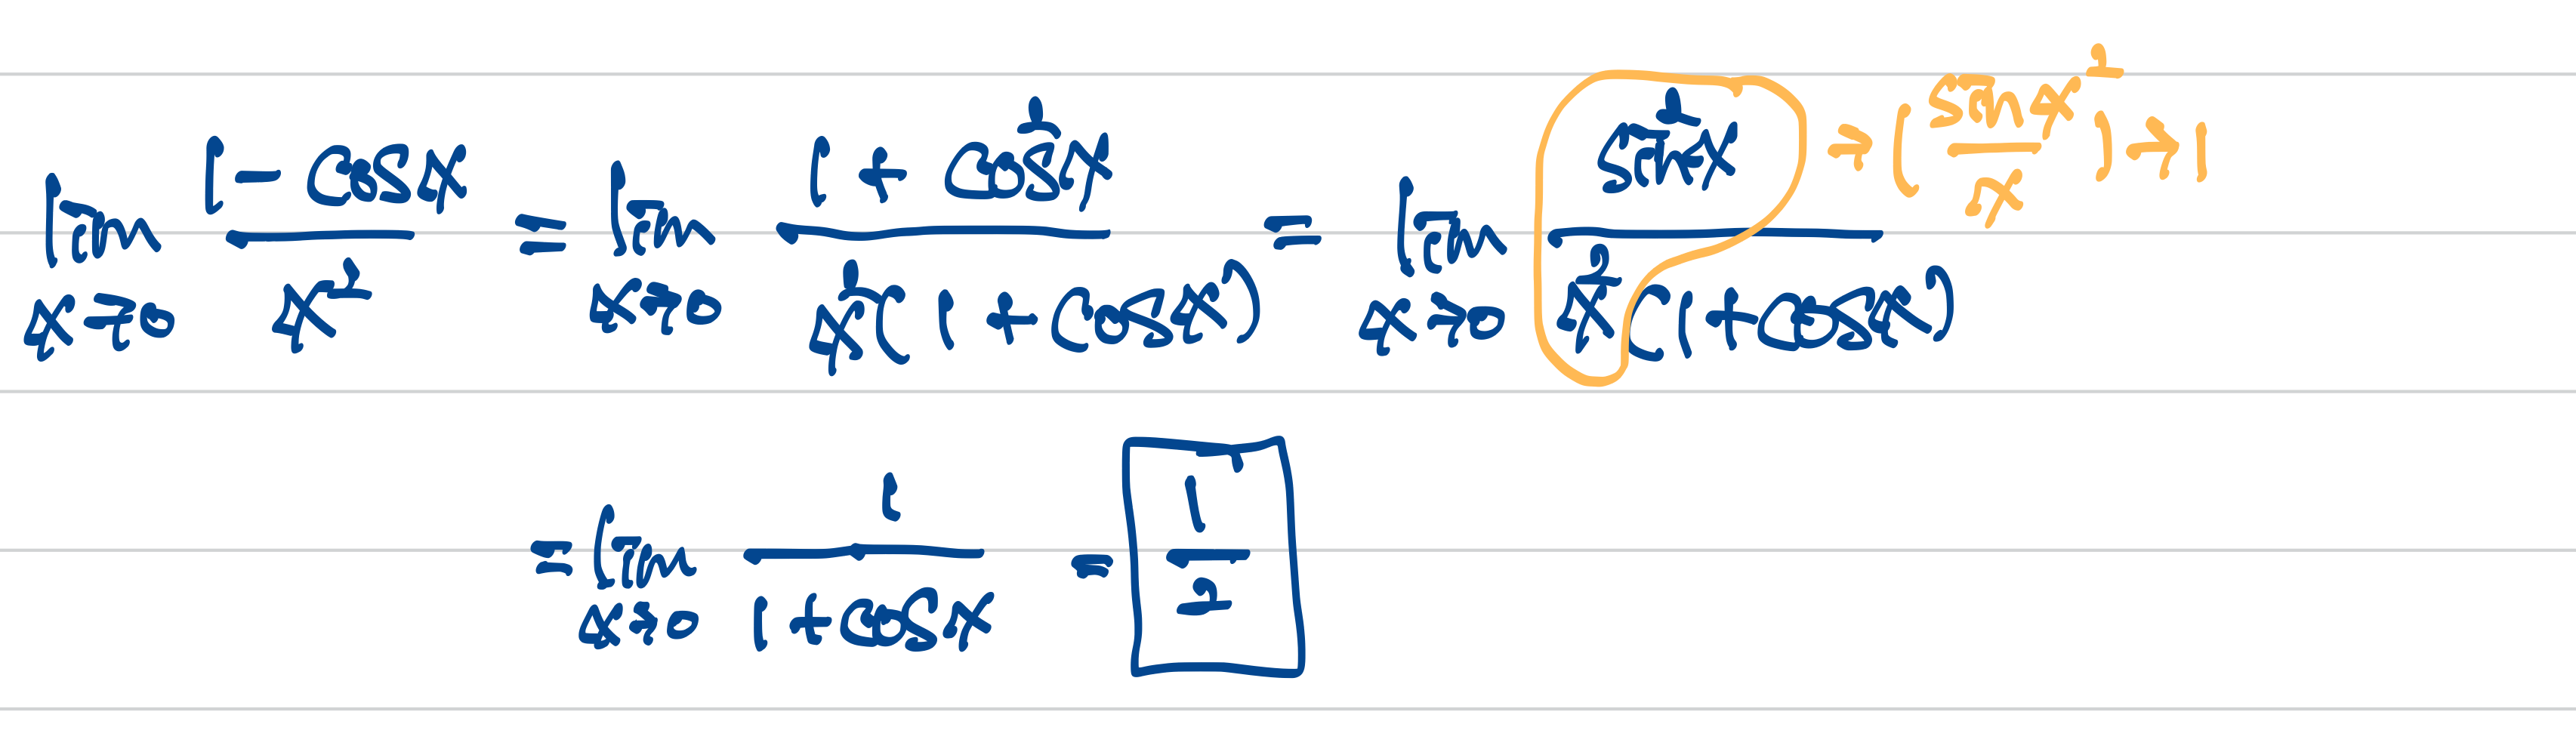 lim_{x→0} (1 - cos x)/x² = lim_{x→0} (1 + cos²x)/(x²(1 + cos x)) = lim_{x→0} sin²x/(x²(1 + cos x)) ⇒ (sin x/x)² → 1
= lim_{x→0} 1/(1 + cos x) = 1/2